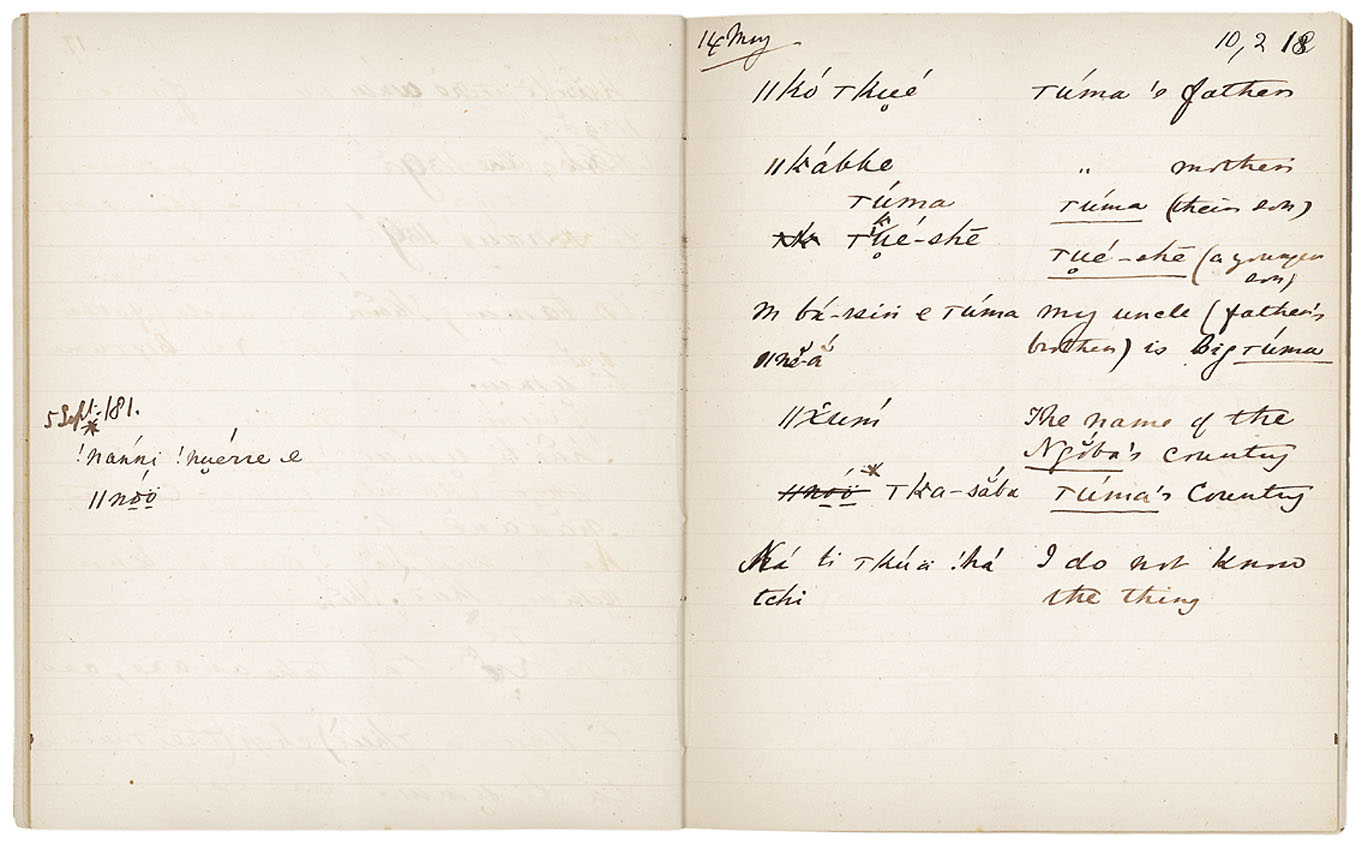 5 Sept. /81.
*
!nánni !nu̥érre e
ǁnó̤ö̤
14 May
10, 2 18
ǁkó Tku̥é Túma's father
ǁkábbe " mother
Túma Túma (their son)
Tku̥é-shĕ Tu̥é-shĕ (a younger son)
m bá-ssin e Túma my uncle (father's
ǁnĕ-á brother) is big Túma
ǁxum The name of the
Ngŏba's country
ǁnóö * Tka-sǎba Túma's Country
Ká ti Tkúa !há I do not know
tchi the thing